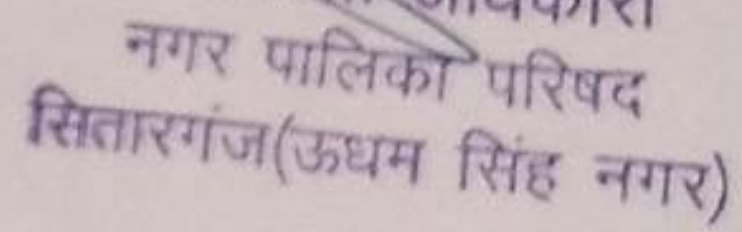 नगर पालिका परिषद
सितारगंज(ऊधम सिंह नगर)